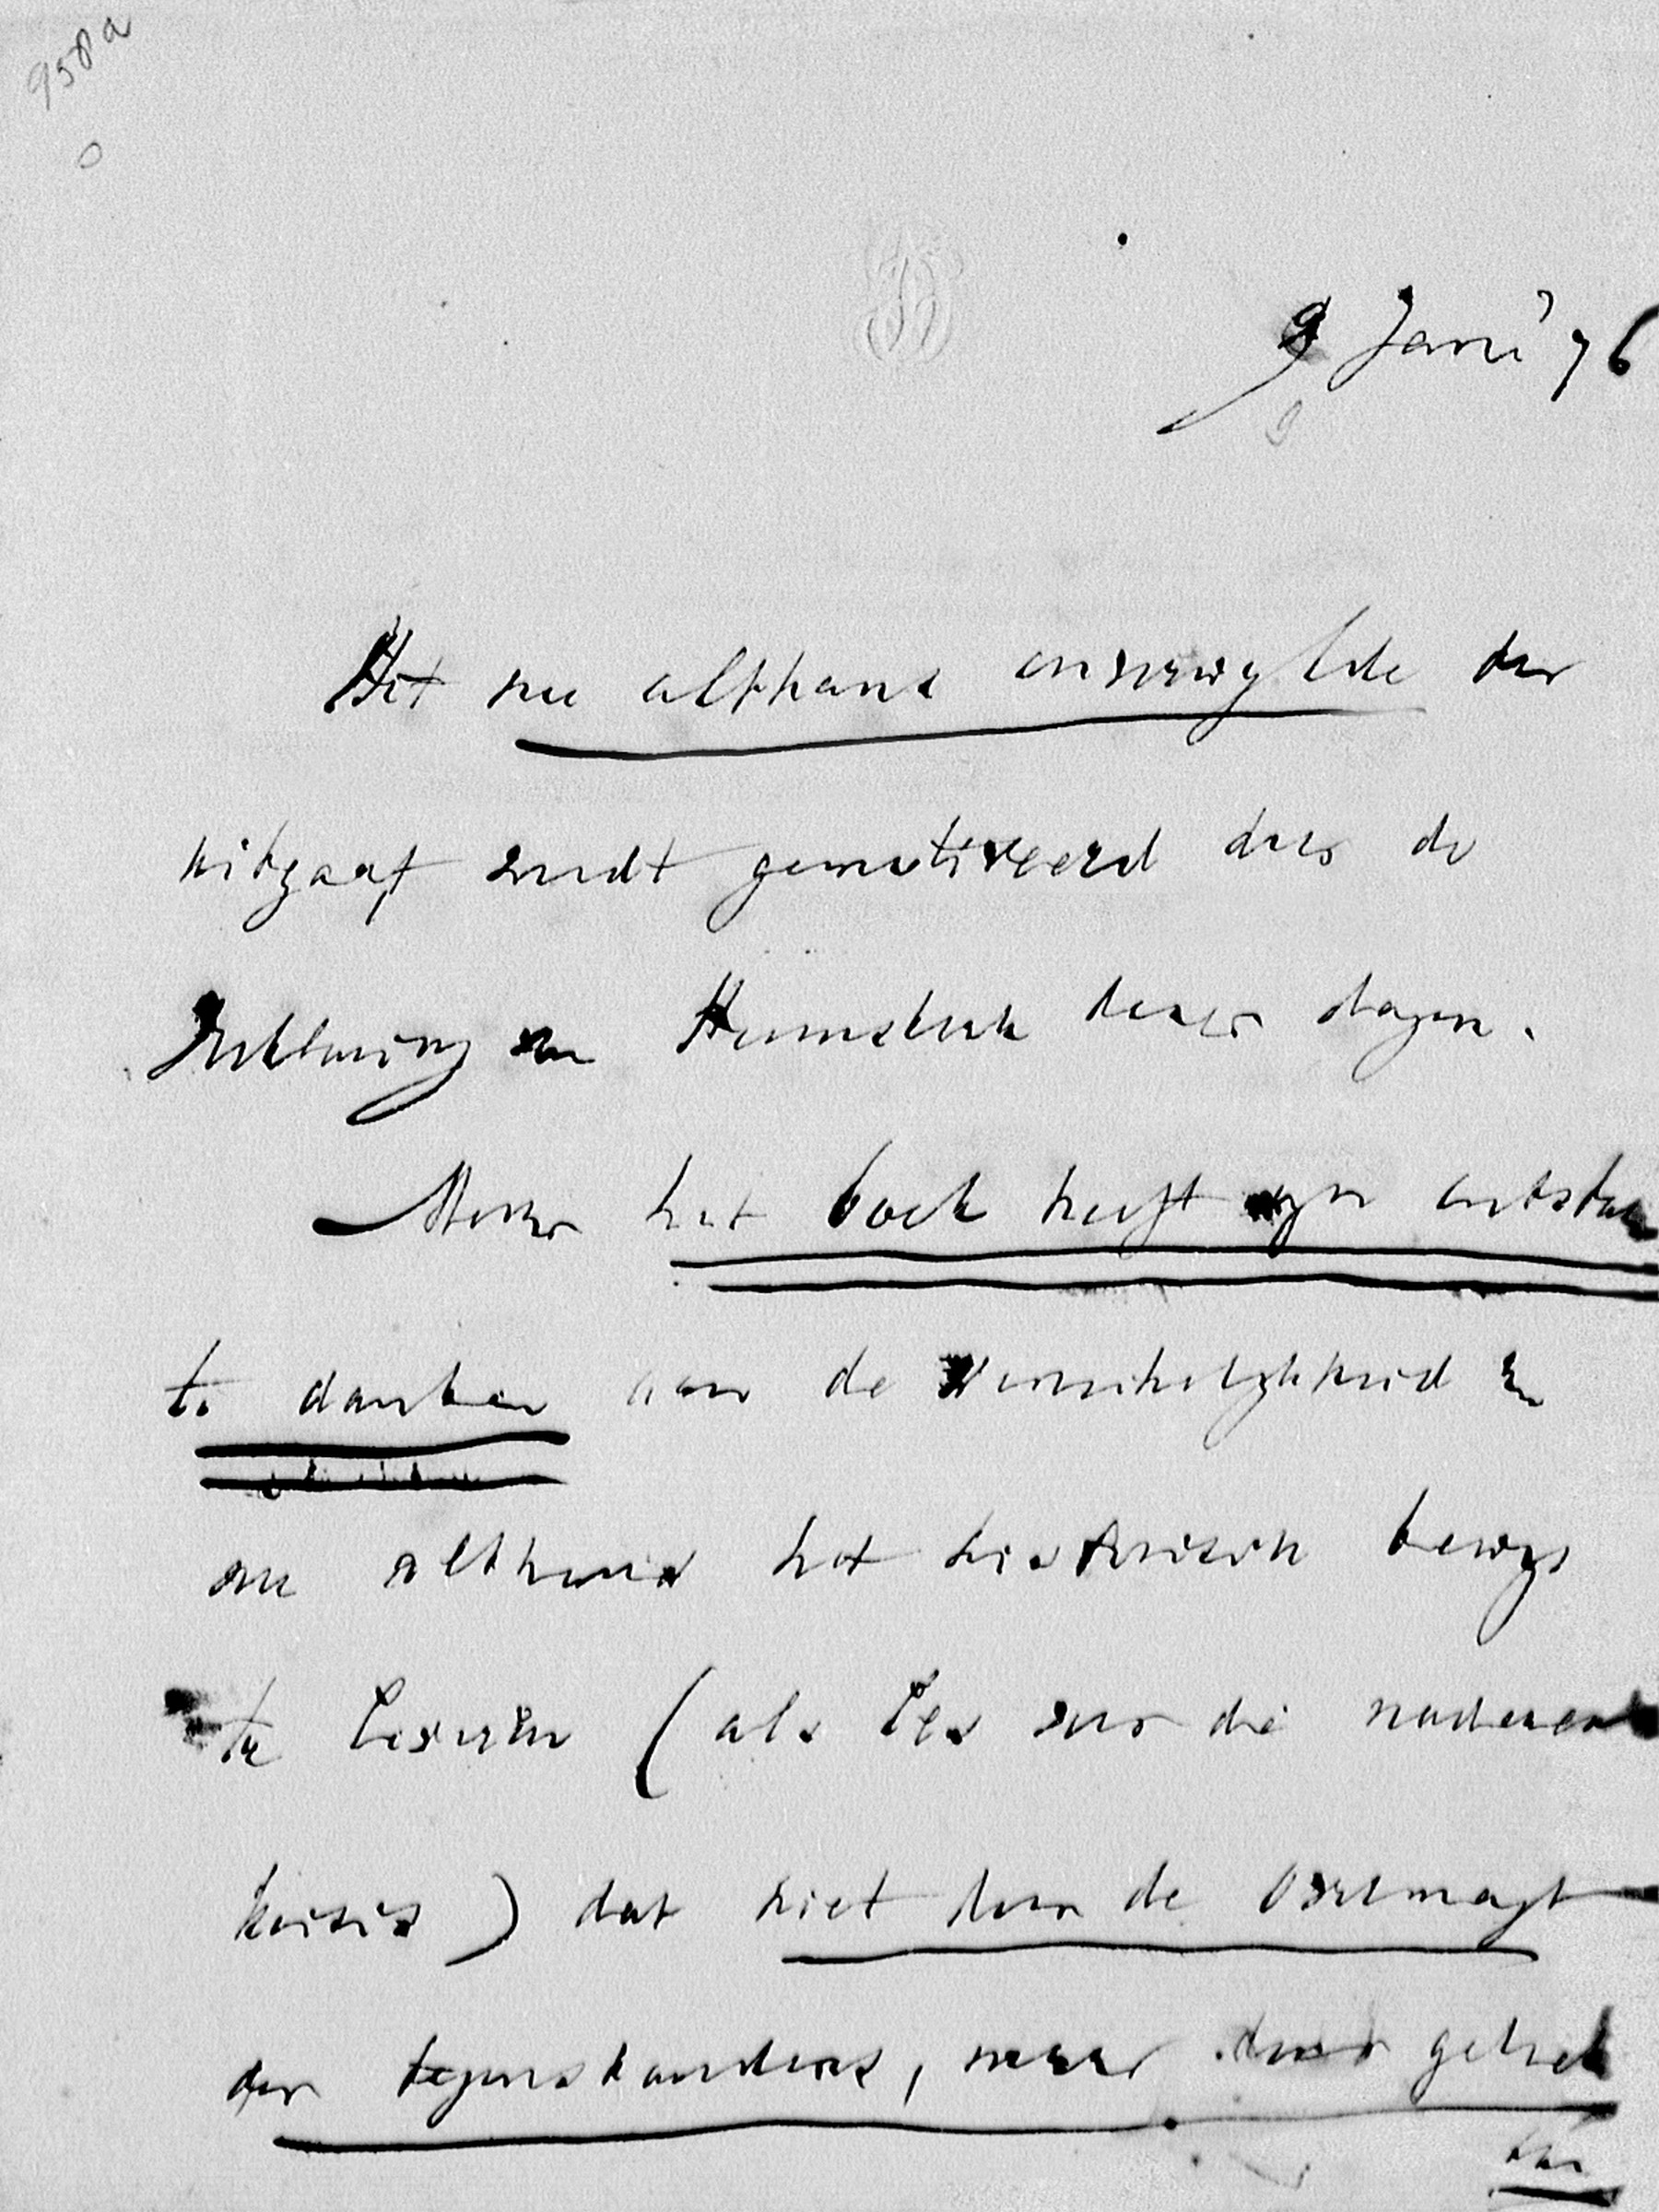 958a
9 Janu '76
Het nu althans onverwylde der
uitgaaf wordt gemotiveerd door de
Indiening van Heemskerk dezer dagen.
Maar het boek heeft zyn ontstaan
te danken aan de wenschelykheid en
om althans het historisch bewys
te leveren (als les voor die naderende
krisis) dat niet door de overmagt
der tegenstanders, maar door gebrek
aan